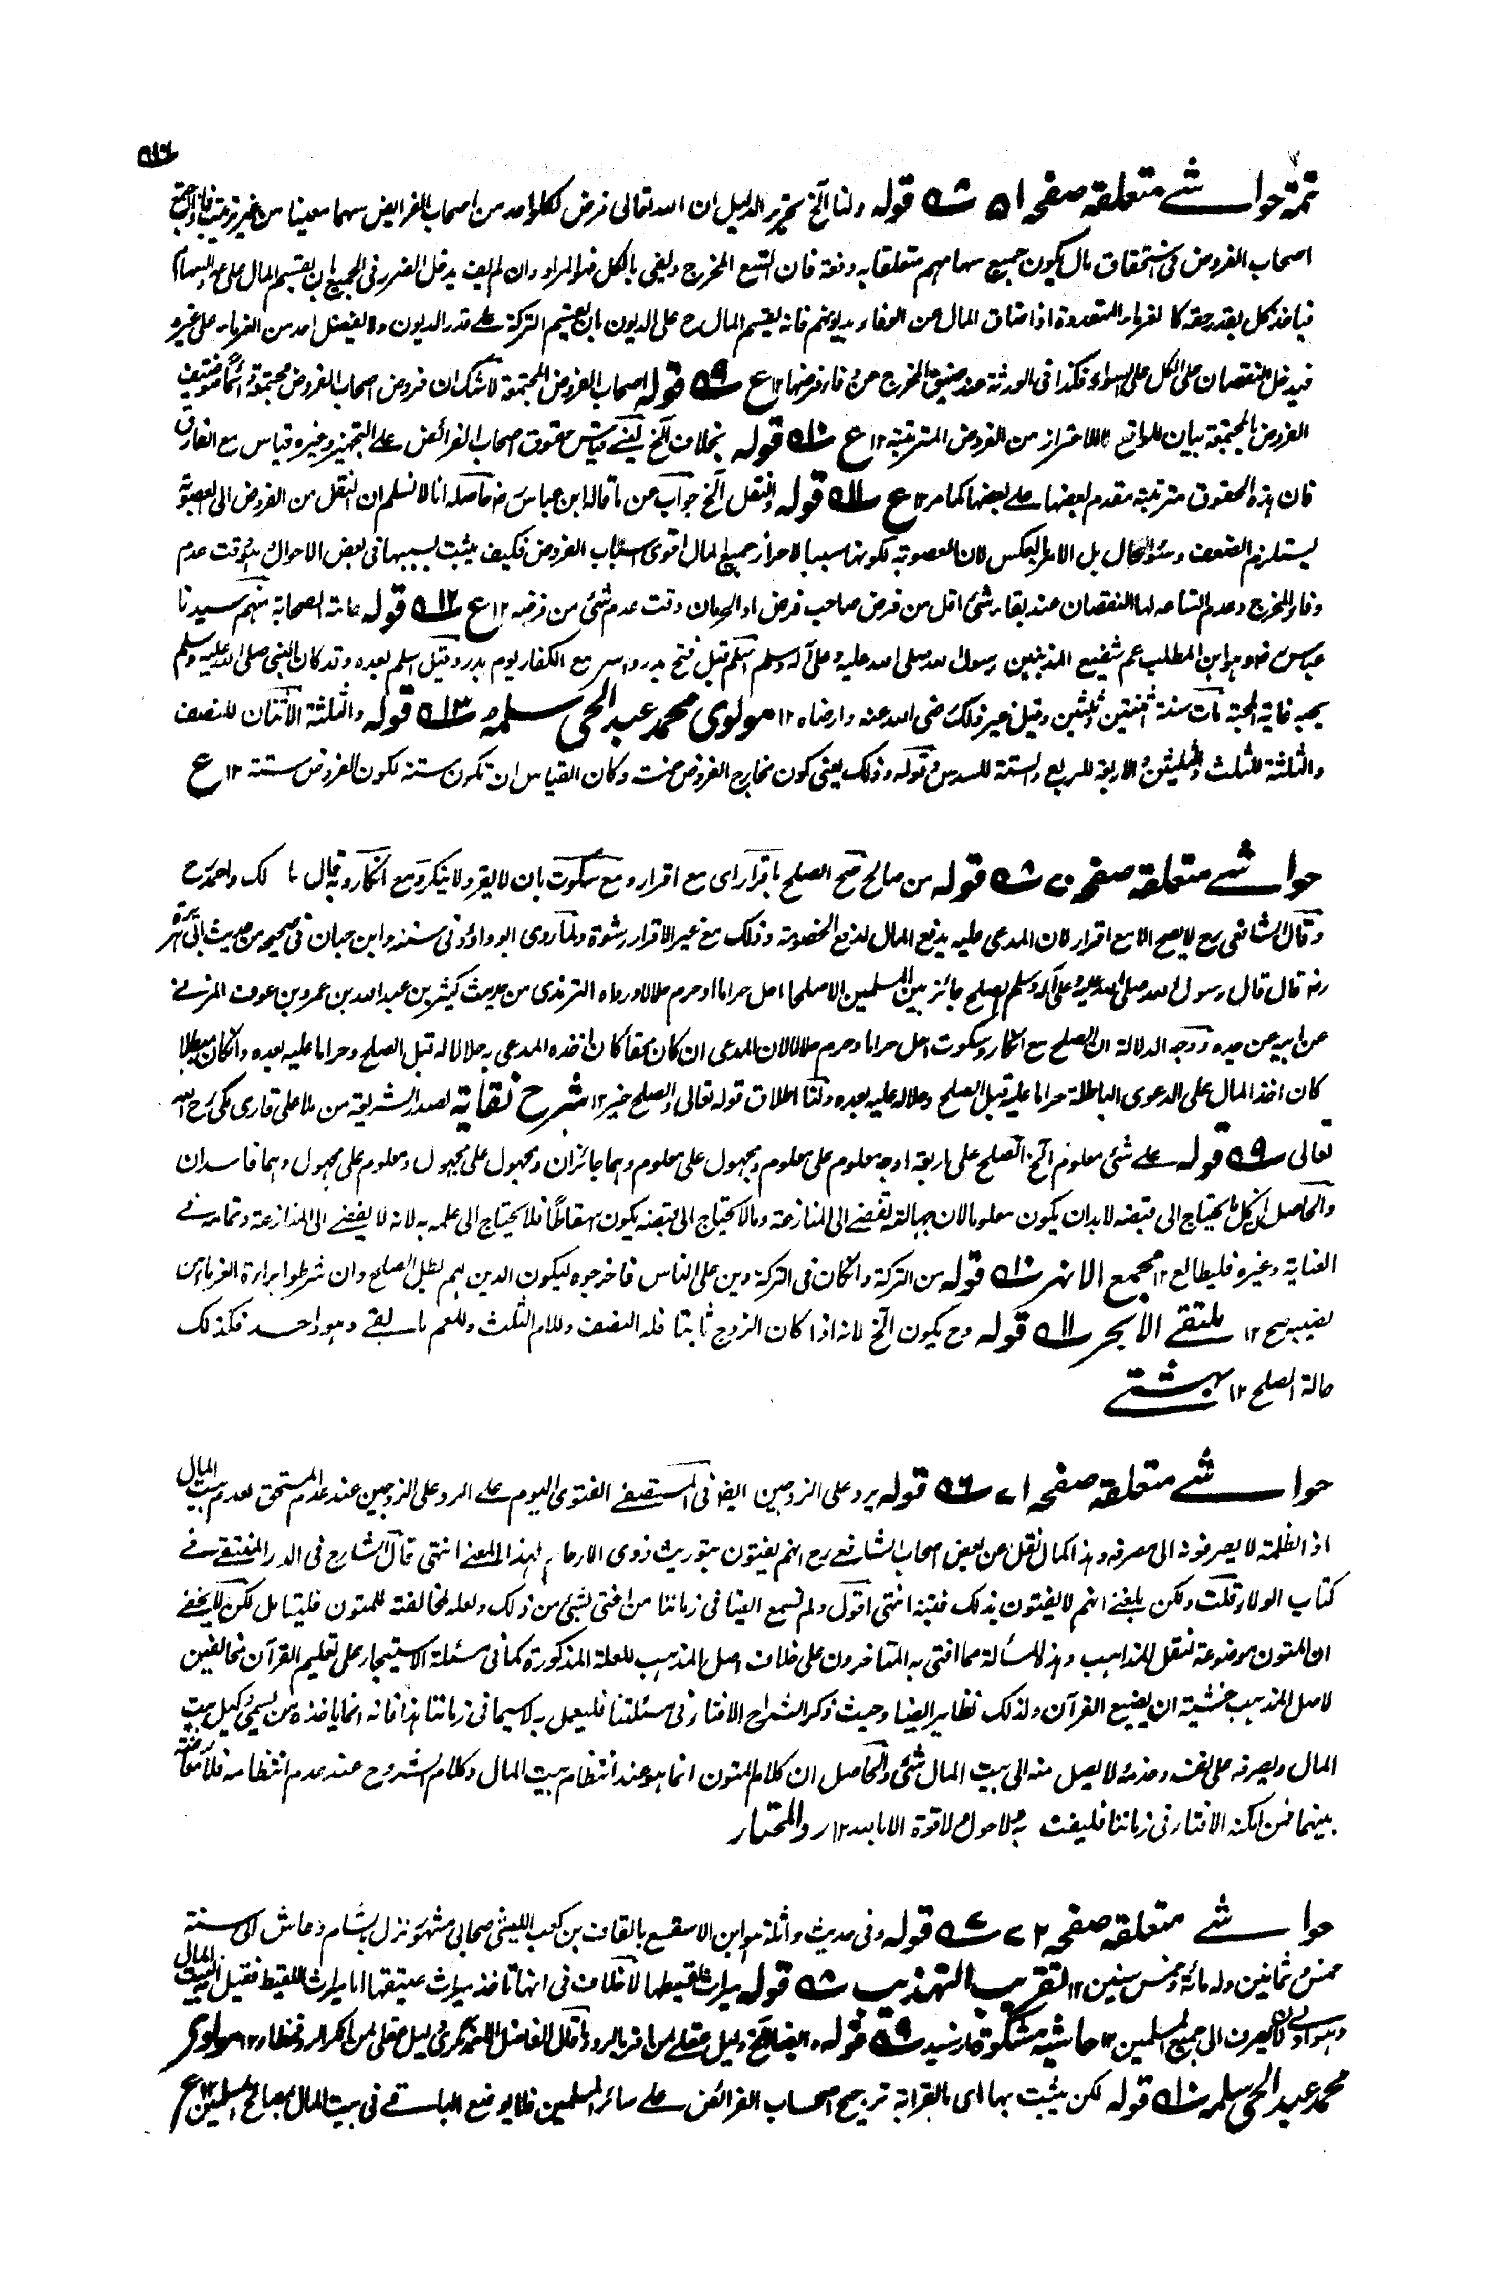 تتمة حواشے متعلقه صفحه ۵۱ ۸ قوله ولنا آلخ تحرير الدليل ان الله تعالى فرض لكل واحد من اصحاب الفرايض سهما معينا من غير ترتيب فاذا اجتمع
اصحاب الفروض فى استحقاق مال يكون جميع سهامهم متعلقا به دفعة فان اتسع المخرج ويفى بالكل فهو المراد وان لم يف يدخل الضرر فى الجميع بان يقسم المال على عدد السهام
فياخذ كل بقدر حقه كالغرماء المتعددة اذا ضاق المال عن الوفاء بديونهم فانه يقسم المال ح على الديون بان يقسم التركة على قدر الديون ولا يفضل احد من الغرماء على غيره
فيدخل النقصان على الكل على السواء فكذا فى الورثة عند ضيق المخرج عن وفاء فروضها ۱۲ ع ۹ قوله اصحاب الفروض المجتمعة لا شك ان فروض اصحاب الفروض مجتمعة ابدا فتوصيف
الفروض بالمجتمعة بيان للواقع لا للاحتراز من الفروض المتفرقة ۱۲ ع ۱۰ قوله بخلاف آلخ يعنے قياس حقوق اصحاب الفرائض علے التجهيز وغيره قياس مع الفارق
فان هذه الحقوق مترتبة مقدم بعضها علے بعضها كما مر ۱۲ ع ۱۱ قوله والنقل آلخ جواب عن ما قاله ابن عباس رضه حاصله انا لا نسلم ان النقل من الفروض الى العصوبة
يستلزم الضعف وسوء الحال بل الامر بالعكس لان العصوبة لكونها سببا لاحراز جميع المال اقوى اسباب الفروض فكيف يثبت بسببها فى بعض الاحوال وهو وقت عدم
وفاء المخرج وعدم اتساعه لها النقصان عند بقاء شئ اقل من فرض صاحب فرض او الحرمان وقت عدم شئ من فرضه ۱۲ ع ۱۲ قوله عامة الصحابة منهم سيدنا
عباس رضه وهو ابن المطلب عم شفيع المذنبين رسول الله صلى الله عليه وعلى آله وسلم اسلم قبل فتح بدر واسر مع الكفار يوم بدر وقيل اسلم بعده وقد كان النبى صلى الله عليه وسلم
يحبه غاية المحبة مات سنة اثنتين وثلثين وقيل غير ذلك رضى الله عنه وارضاه ۱۲ مولوى محمد عبد الحى سلمه ۱۳ قوله والثلثة الاثنان للنصف
والثلثة للثلث والثلثين والاربعة للربع والستة للسدس قوله وذلك يعنى كون مخارج الفروض خمسة وكان القياس ان تكون ستة لكون الفروض ستة ۱۲ ع
حواشے متعلقه صفحه ۷۰ ۸ قوله من صالح صح الصلح باقرار اى مع اقرار ومع سكوت بان لا يقر ولا ينكر ومع انكار وبه قال مالك واحمد رح
وقال الشافعى رح لا يصح الا مع اقرار لان المدعى عليه يدفع المال لدفع الخصومة وذلك مع غير الاقرار رشوة ولما روى ابو داؤد فى سننه وابن حبان فى صحيحه من حديث ابى هريرة
رضه قال قال رسول الله صلى الله عليه وعلى آله وسلم الصلح جائز بين المسلمين الا صلحا احل حراما او حرم حلالا ورواه الترمذى من حديث كثير بن عبد الله بن عمرو بن عوف المزنے
عن ابيه عن جده ووجه الدلالة ان الصلح مع انكار وسكوت احل حراما وحرم حلالا لان المدعى ان كان محقا كان اخذه المدعى به حلالا له قبل الصلح وحراما عليه بعده وانكان مبطلا
كان اخذ المال على الدعوى الباطلة حراما عليه قبل الصلح وحلا له عليه بعده ولنا اطلاق قوله تعالى والصلح خير ۱۲ شرح نقاية لصدر الشريعة من ملا على قارى مكى رح الله
تعالى ۹ قوله علے شئ معلوم آلخ الصلح على اربعة اوجه معلوم على معلوم ومجهول على معلوم وهما جائزان ومجهول على مجهول ومعلوم على مجهول وهما فاسدان
والحاصل ان كل ما يحتاج الى قبضه لابد ان يكون معلوما لان جهالته تفضے الى المنازعة وما لا يحتاج الى قبضه يكون اسقاطا فلا يحتاج الى علمه به لانه لا يفضے الى المنازعة وتمامه فے
العناية وغيره فليطالع ۱۲ مجمع الانهر ۱۰ قوله من التركة وانكان فى التركة دين على الناس فاخرجوه ليكون الدين لهم بطل الصلح وان شرطوا براءة الغرماء من
نصيبه صح ۱۲ ملتقے الابحر ۱۱ قوله وح يكون آلخ لانه اذا كان الزوج ثابتا فله النصف وللام الثلث وللعم ما بقے وهو واحد فكذلك
حالة الصلح ۱۲ بهشتے
حواشے متعلقه صفحه ۷۱ ۶ قوله يرد على الزوجين ايضا فى المستصفے الفتوى اليوم علے الرد على الزوجين عند عدم المستحق لعدم بيت المال
اذ الظلمة لا يصرفونه الى مصرفه وهذا كما نقل عن بعض اصحاب الشافعے رح انهم يفتون بتوريث ذوى الارحام لهذا المعنے انتهى قال الشارح فى الدر المنتقے فے
كتاب الولاء قلت ولكن بلغنے انهم لا يفتون بذلك فتنبه انتهى اقول ولم نسمع ايضا فى زماننا من افتى بشئ من ذلك ولعله لمخالفته للمتون فليتامل لكن لا يخفے
ان المتون موضوعة لنقل المذاهب وهذه المسألة مما افتى به المتاخرون على خلاف اصل المذهب للعلة المذكورة كما فى مسئلة الاستيجار على تعليم القرآن مخالفين
لاصل المذهب خشية ان يضيع القرآن ولذلك نظاير ايضا وحيث ذكر الشراح الافتاء فى مسئلتنا فليعمل به لاسيما فى زماننا هذا فانه انما ياخذه من يسمى وكيل بيت
المال ويصرفه على نفسه وخدمه ولا يصل منه الى بيت المال شئ والحاصل ان كلام المتون انما هو عند انتظام بيت المال وكلام الشروح عند عدم انتظامه فلا معارضة
بينهما فمن امكنه الافتاء فى زماننا فليفت به ولا حول ولا قوة الا بالله ۱۲ رد المحتار
حواشے متعلقه صفحه ۷۲ ۷ قوله وفى حديث واثلة هو ابن الاسقع بالقاف بن كعب الليثى صحابى مشهور نزل بشام وعاش الى سنة
خمس وثمانين وله مائة وخمس سنين ۱۲ تقريب التهذيب ۸ قوله ميراث لقيطها لا خلاف فى انها تاخذ ميراث عتيقها اما ميراث اللقيط فقيل لبيت المال
وهو اولى بان يصرف الى جميع المسلمين ۱۲ حاشية مشكوة فارسيه ۹ قوله وايضا آلخ دليل عقلے لمن اقر بالرد وقال الفاضل الاحمدنكرى دليل عقلى لمن انكر الرد فنظار ۱۲ مولوى
محمد عبد الحى سلمه ۱۰ قوله لكن يثبت بها اى بالقرابة ترجيح اصحاب الفرائض علے سائر المسلمين فلا يوضع الباقے فى بيت المال لمصالح المسلمين ۱۲ ع